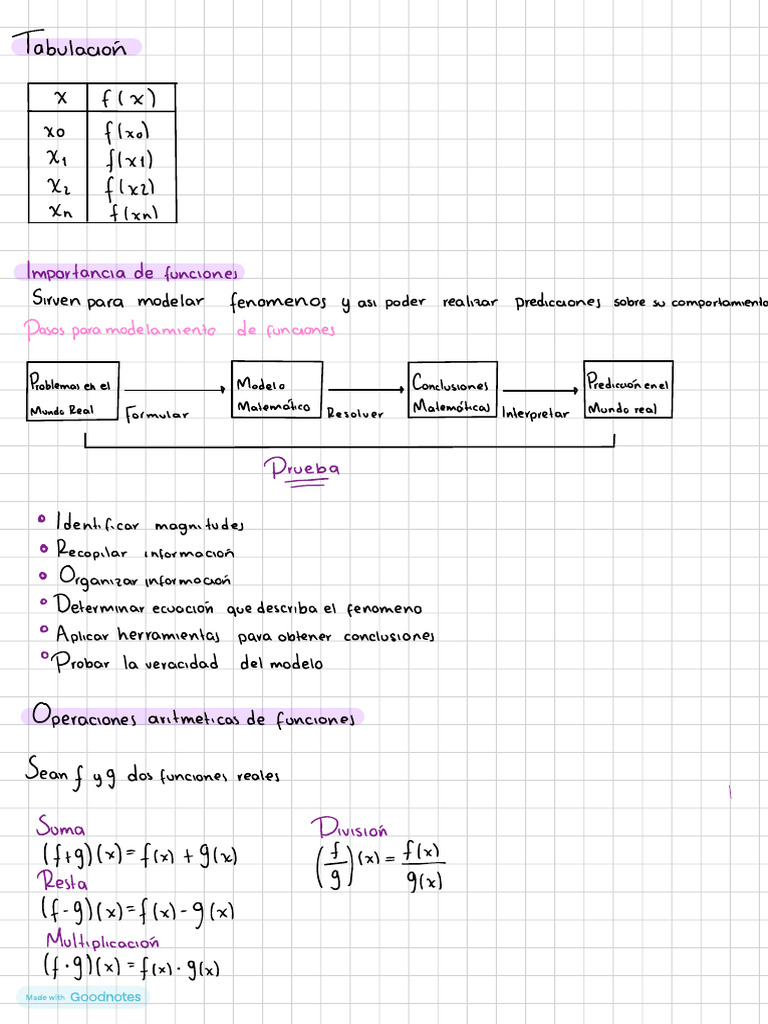 Tabulación
x f(x)
x0 f(x0)
x1 f(x1)
x2 f(x2)
xn f(xn)
Importancia de funciones
Sirven para modelar fenomenos y asi poder realizar predicciones sobre su comportamiento
Pasos para modelamiento de funciones
Problemas en el Mundo Real
Formular
Modelo Matemático
Resolver
Conclusiones Matemáticas
Interpretar
Predicción en el Mundo real
Prueba
• Identificar magnitudes
• Recopilar información
• Organizar información
• Determinar ecuación que describa el fenomeno
• Aplicar herramientas para obtener conclusiones
• Probar la veracidad del modelo
Operaciones aritmeticas de funciones
Sean f y g dos funciones reales
Suma
(f+g)(x)=f(x)+g(x)
Resta
(f-g)(x)=f(x)-g(x)
Multiplicación
(f·g)(x)=f(x)·g(x)
División
(f/g)(x)=f(x)/g(x)
Made with Goodnotes